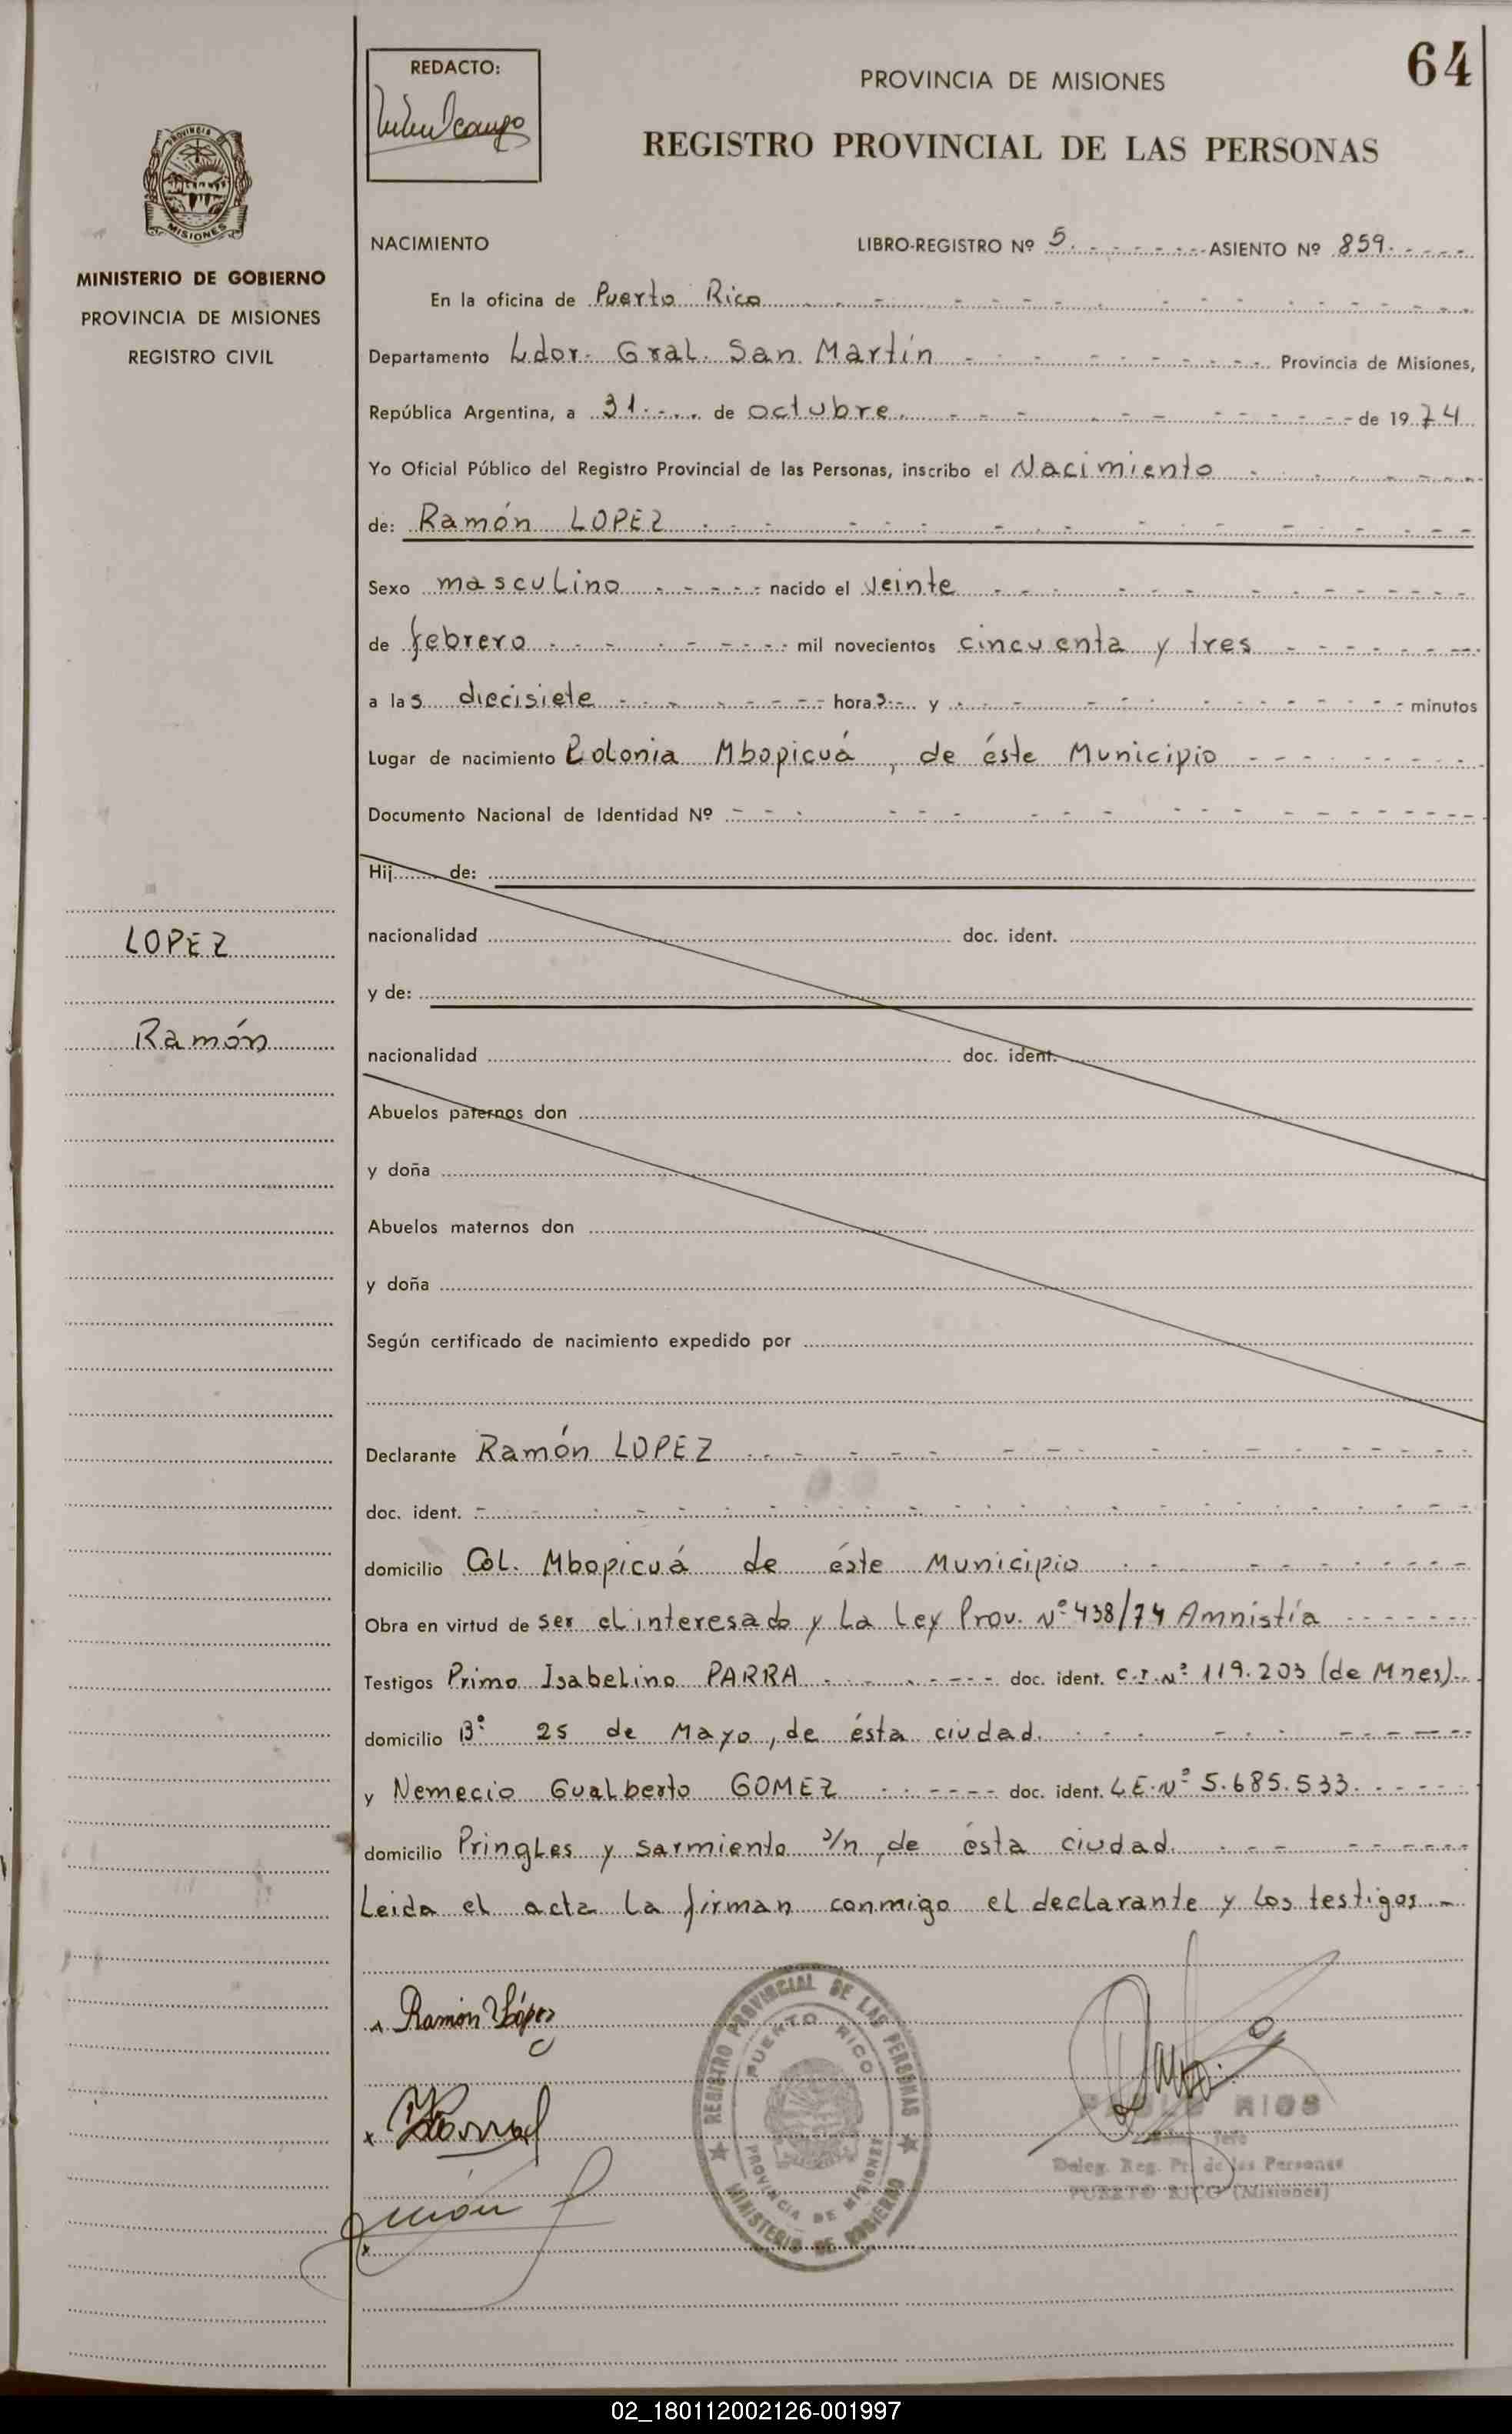 64
REDACTO:
PROVINCIA DE MISIONES
REGISTRO PROVINCIAL DE LAS PERSONAS
PROVINCIA
MISIONES
MINISTERIO DE GOBIERNO
PROVINCIA DE MISIONES
REGISTRO CIVIL
NACIMIENTO LIBRO-REGISTRO Nº 5 ASIENTO Nº 859
En la oficina de Puerto Rico
Departamento Ldor. Gral. San Martín Provincia de Misiones,
República Argentina, a 31 de octubre de 1974
Yo Oficial Público del Registro Provincial de las Personas, inscribo el Nacimiento
de: Ramón LOPEZ
Sexo masculino nacido el veinte
de febrero mil novecientos cincuenta y tres
a las diecisiete horas y minutos
Lugar de nacimiento Colonia Mbopicuá, de éste Municipio
Documento Nacional de Identidad Nº
Hij de:
nacionalidad doc. ident.
y de:
nacionalidad doc. ident.
LOPEZ
Ramón
Abuelos paternos don
y doña
Abuelos maternos don
y doña
Según certificado de nacimiento expedido por
Declarante Ramón LOPEZ
doc. ident.
domicilio Col. Mbopicuá de éste Municipio
Obra en virtud de ser el interesado y La Ley Prov. Nº 438/74 Amnistía
Testigos Primo Isabelino PARRA doc. ident. C.I.Nº 119.203 (de Mnes)
domicilio Bº 25 de Mayo, de ésta ciudad.
y Nemecio Gualberto GOMEZ doc. ident. L.E.Nº 5.685.533.
domicilio Pringles y Sarmiento s/n, de ésta ciudad.
Leida el acta la firman conmigo el declarante y los testigos.
Ramón López
REGISTRO PROVINCIAL DE LAS PERSONAS
PUERTO RICO
PROVINCIA DE MISIONES
MINISTERIO DE GOBIERNO
RIOS
Jefe
Deleg. Reg. Pr. de las Personas
PUERTO RICO (Misiones)
02_180112002126-001997